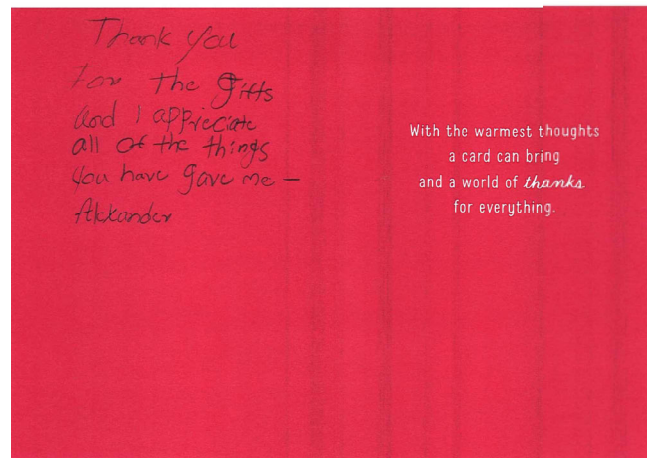 Thank you
For the gifts
and I appreciate
all of the things
you have gave me –
Alexander
With the warmest thoughts
a card can bring
and a world of thanks
for everything.